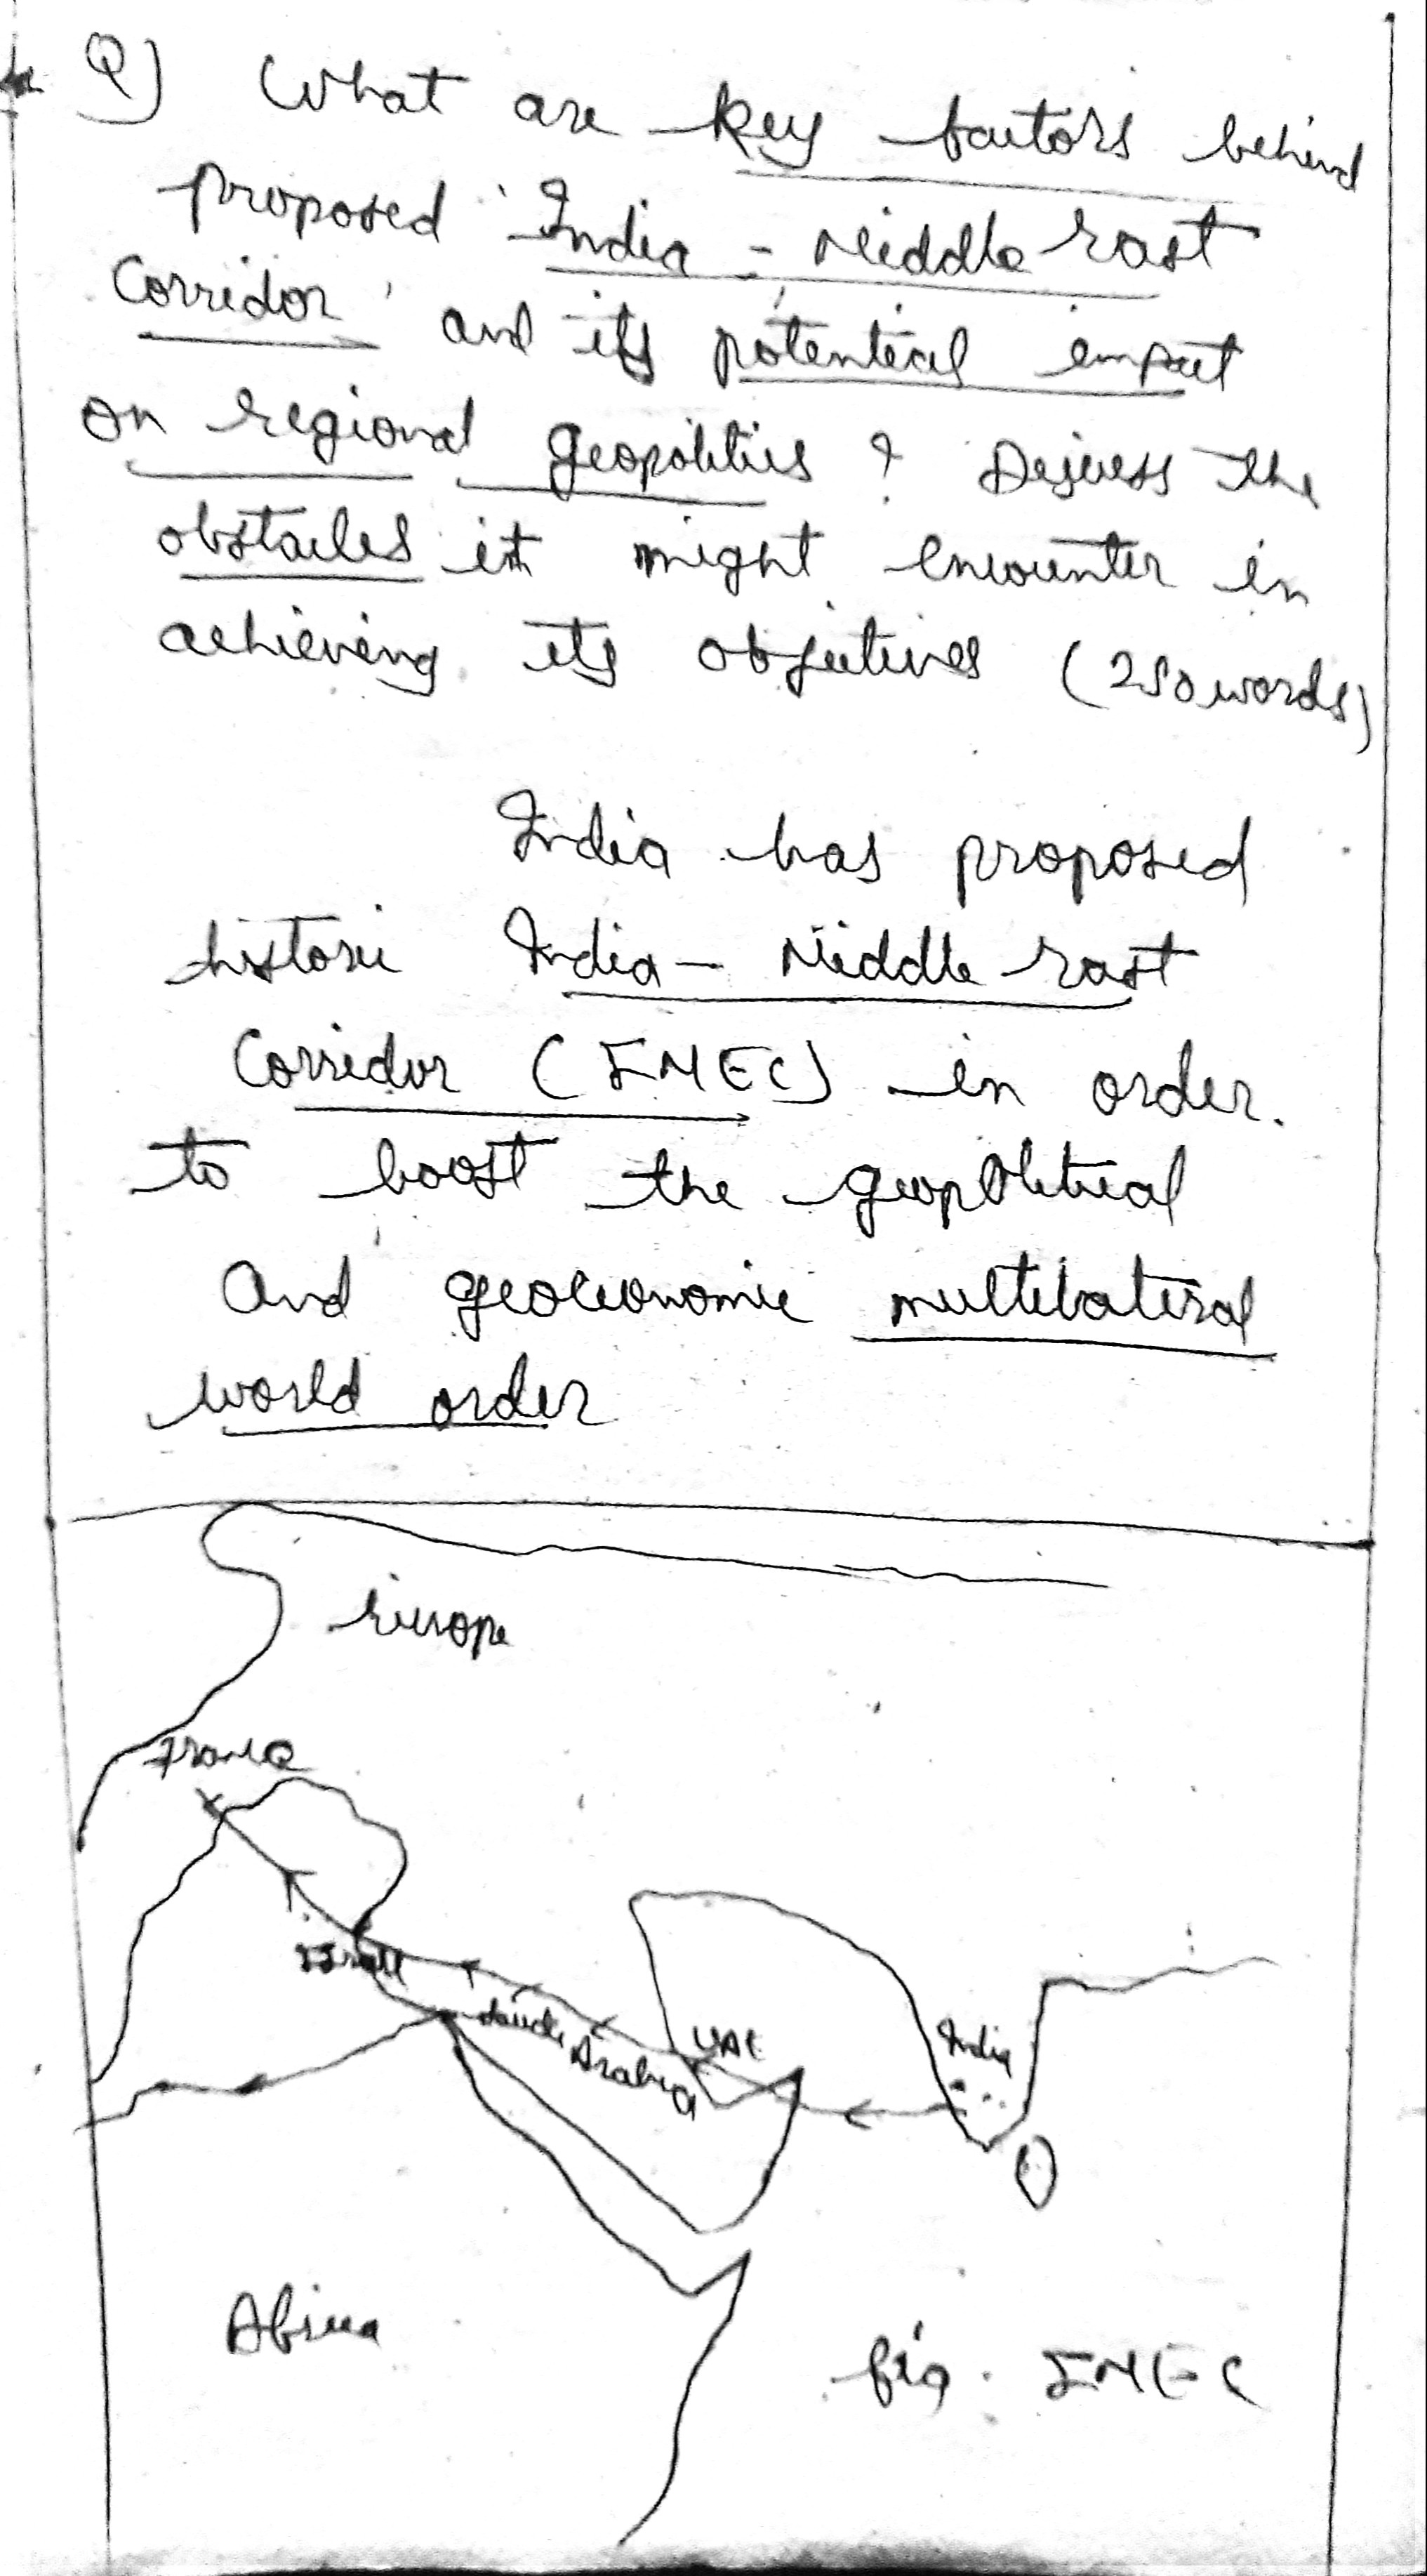 Q) What are key factors behind
proposed 'India - Middle East
Corridor' and its potential impact
on regional geopolitics ? Discuss the
obstacles it might encounter in
achieving its objectives (250 words)
India has proposed
historic India - Middle East
Corridor (IMEC) in order
to boost the geopolitical
and geoeconomic multilateral
world order
Europe
France
Israel
Saudi Arabia
UAE
India
Africa
fig. IMEC